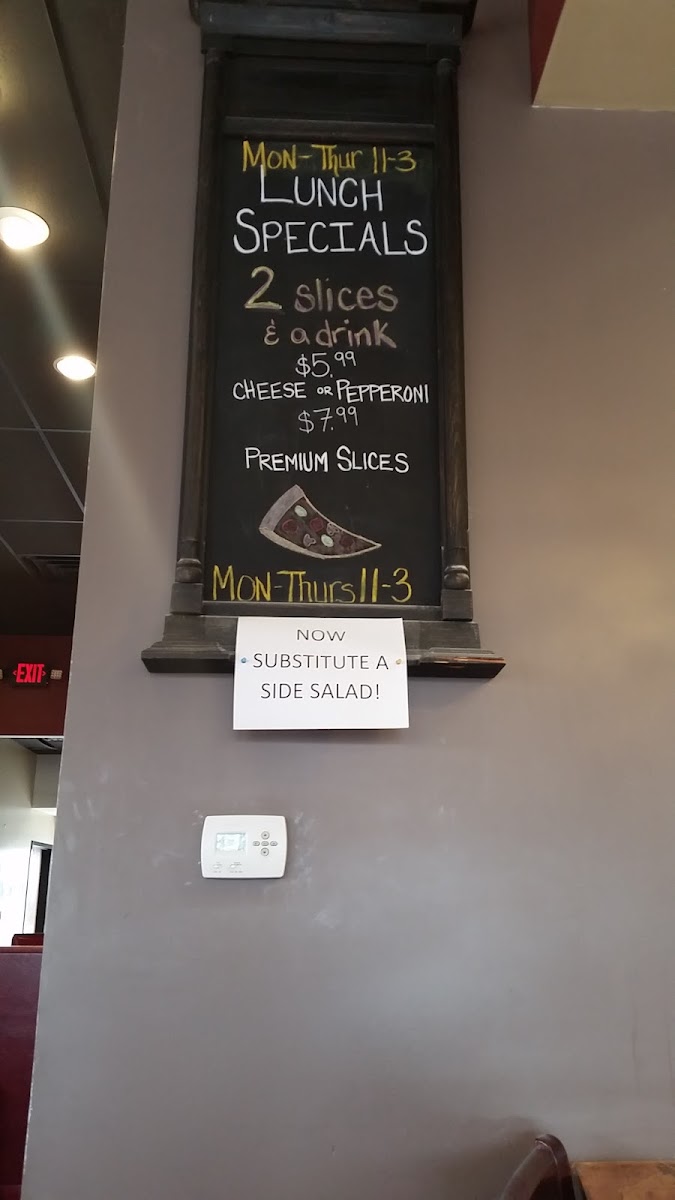 MON-Thur 11-3
LUNCH
SPECIALS
2 slices
& a drink
$5.99
CHEESE OR PEPPERONI
$7.99
PREMIUM SLICES
MON-Thurs 11-3
NOW
SUBSTITUTE A
SIDE SALAD!
EXIT